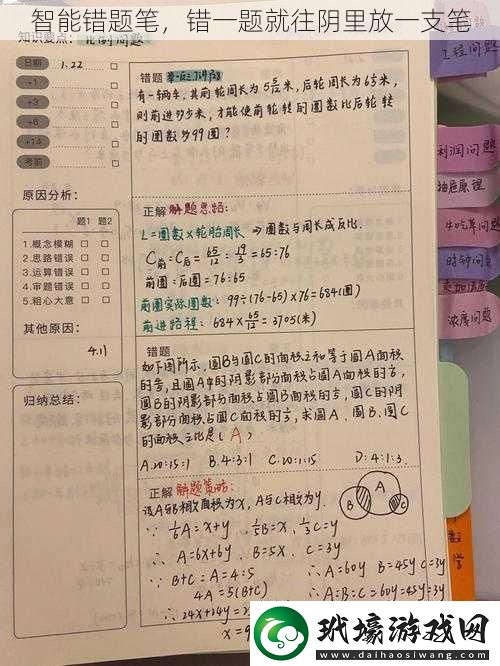 智能错题笔，错一题就往阴里放一支笔
知识要点：比例问题
日期 1.22
+1
+3
+6
+14
考前
错题 举一反三讲解
有一辆车，其前轮周长为5 5/12米，后轮周长为6 1/3米，
则前进多少米，才能使前轮转的圈数比后轮转
的圈数多99圈？
原因分析：
题1 题2
1.概念模糊 □ □
2.思路错误 □ □
3.运算错误 □ □
4.审题错误 □ □
5.粗心大意 □ □
其他原因：
4.11
归纳总结：
正解 解题思路：
L=圈数×轮胎周长 ⇒圈数与周长成反比.
C前:C后=65/12:19/3=65:76
前圈:后圈=76:65
前圈实际圈数：99÷(76-65)×76=684(圈)
前进路程：684×65/12=3705(米)
错题
如下图所示，圆B与圆C的面积之和等于圆A面积
的4/5，且圆A中的阴影部分面积占圆A面积的1/6，
圆B的阴影部分面积占圆B面积的1/5，圆C的阴
影部分面积占圆C面积的1/3，求圆A、圆B、圆C
的面积之比是（A）
A.20:15:1 B.4:3:1 C.20:1:15 D:4:1:3.
正解 解题策略：
设A与B相交面积为x，A与C相交为y.
A
B
C
∵ 1/6A=x+y 1/5B=x，1/3C=y
∴ A=6x+6y，B=5x，C=3y
∵ B+C:A=4:5
4A=5(B+C)
∴ 24x+24y=2
x=9
∴A=60y B=45y C=3y
∴A:B:C=60y:45y:3y
工程问题
利润问题
抽屉原理
牛吃草问题
时钟问题
浓度问题
数学
玳壕游戏网
www.daihaosiwang.com